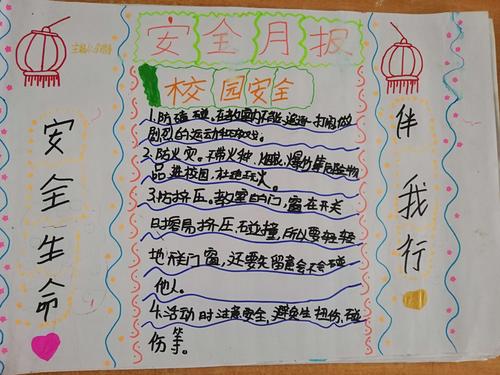 安全月报
校园安全
安全生命
伴我行
1.防磕碰。在教室内不能追逐、打闹、做
剧烈的运动和游戏。
2.防火灾。不带火种、烟花、爆竹等危险物
品进校园,杜绝玩火。
3.防挤压。教室的门,窗在开关
时容易挤压,碰撞,所以要轻轻
地关门窗,还要先留意会不会碰
他人。
4.活动时注意安全,避免生扭伤,碰
伤等。